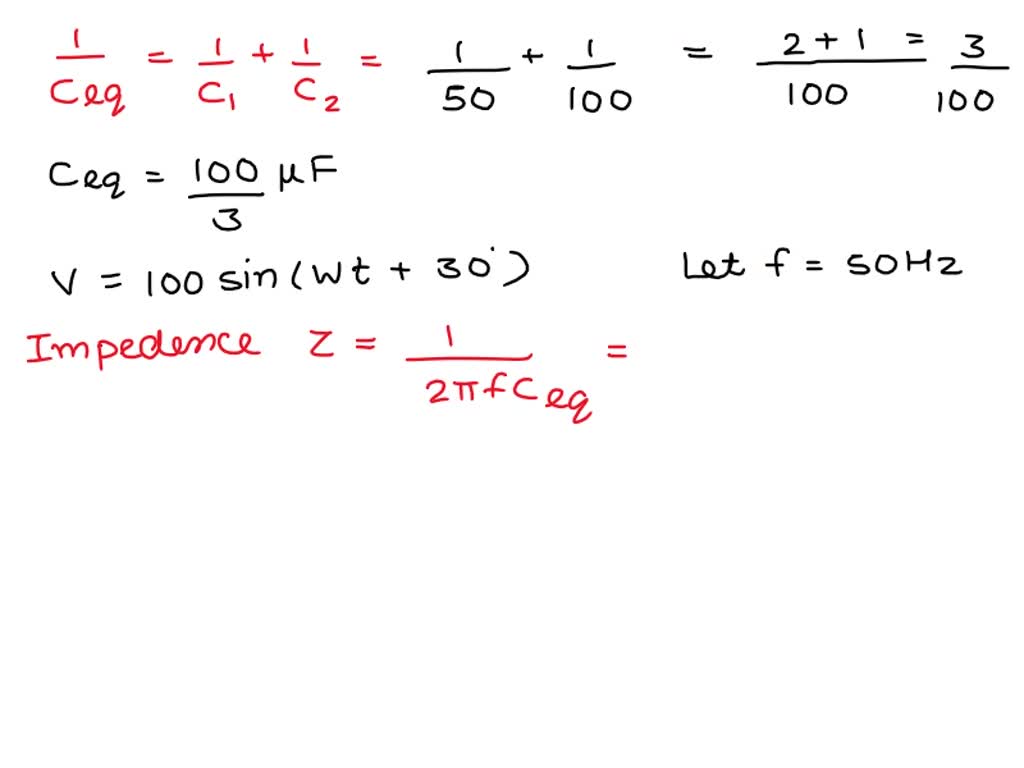 1/Ceq = 1/C1 + 1/C2 = 1/50 + 1/100 = 2+1/100 = 3/100
Ceq = 100/3 μF
V = 100 sin(Wt + 30°) Let f = 50Hz
Impedence Z = 1/2πfCeq =